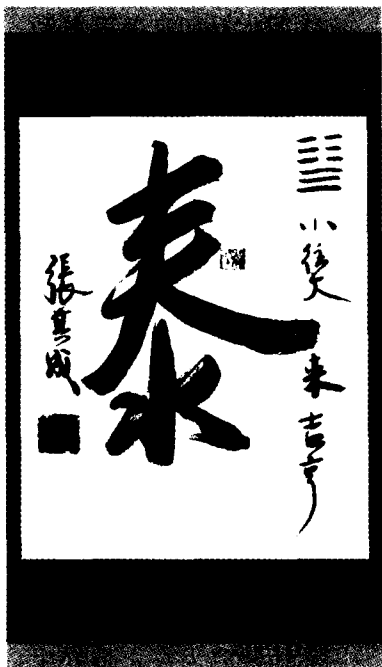 小往大来吉亨
泰
張其成